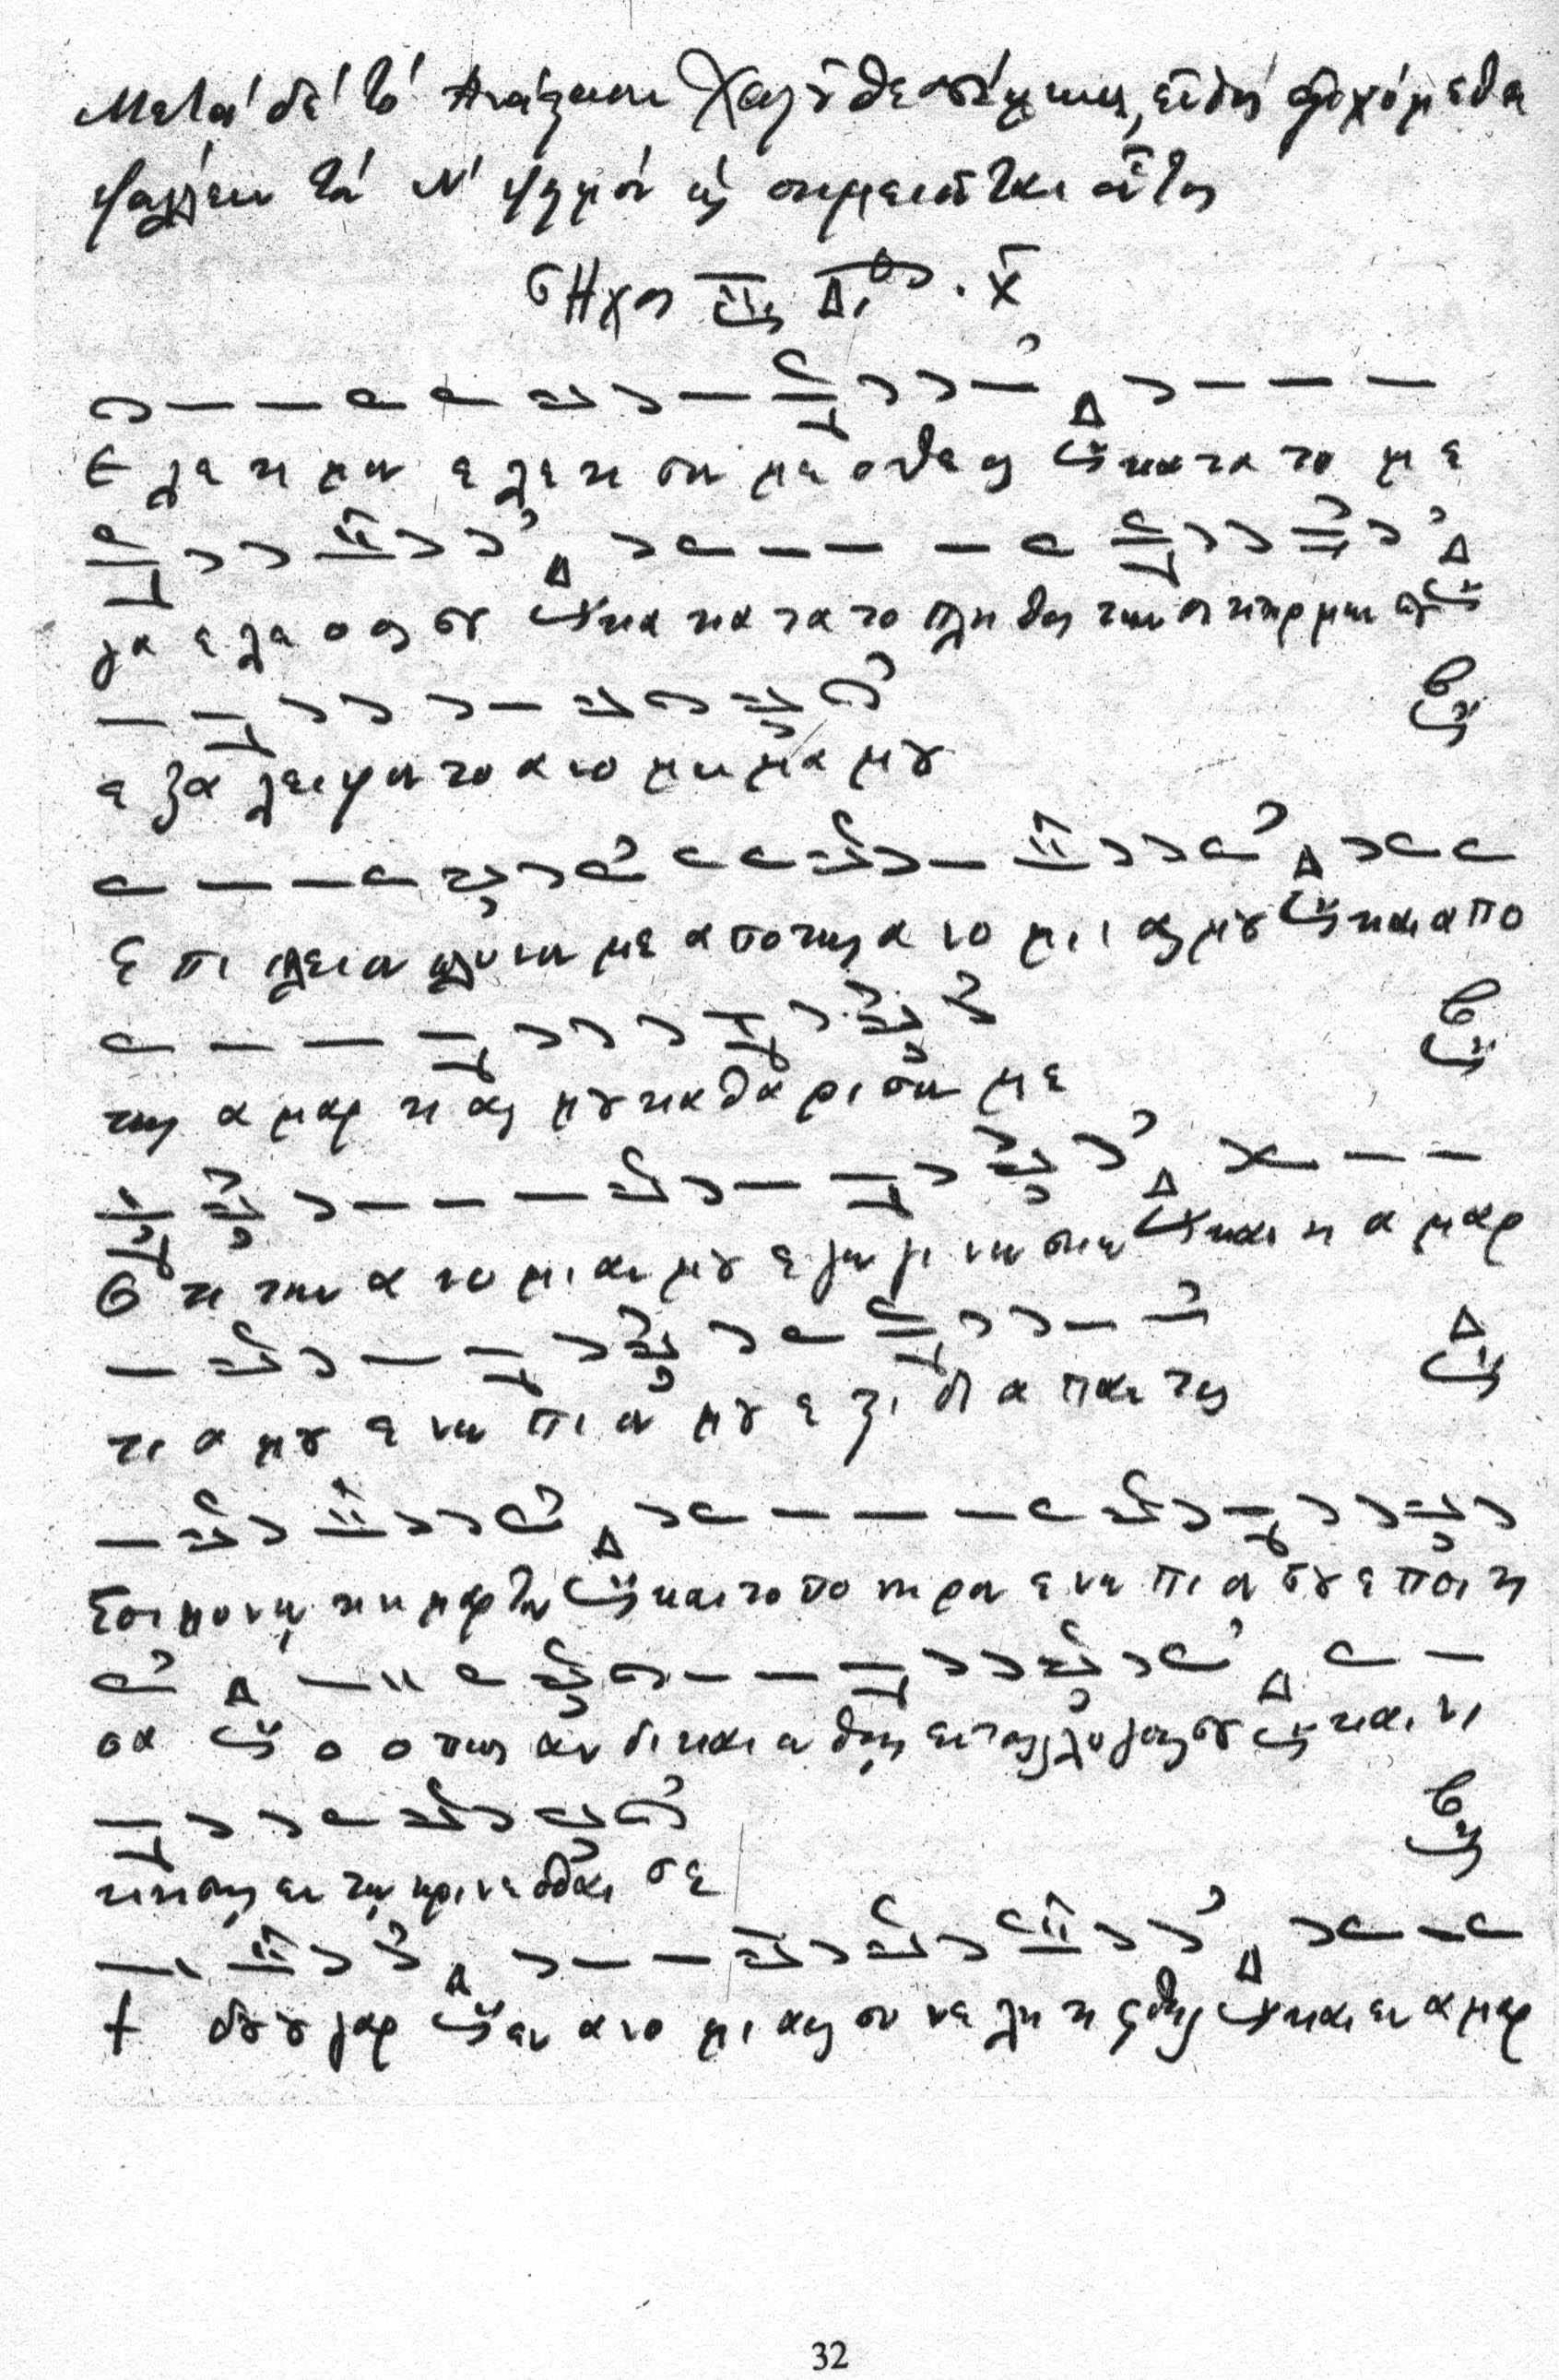 Μετά δέ τό Ἀνάστασιν Χριστοῦ θεασάμενοι, εὐθύς ἀρχόμεθα
ψάλλειν τόν Ν' ψαλμόν ὡς σημειοῦται οὕτως
Ἦχος Δι . χ
Ε λε η μον ε λε η σον με ο Θε ος κα τα το με
γα ε λε ο ος σου και κα τα το πλη θος των οι κτιρ μων σου
ε ξα λει ψον το α νο μη μα μου
Ε πι πλειον πλυ νον με α πο της α νο μι ας μου και α πο
της α μαρ τι ας μου κα θα ρι σον με
Ο τι την α νο μι αν μου ε γω γι νω σκω και η α μαρ
τι α μου ε νω πι ον μου ε στι δι α παν τος
Σοι μο νω η μαρ τον και το πο νη ρον ε νω πι ον σου ε ποι η
σα ο ο πως αν δι και ω θης εν τοις λο γοις σου και νι
κη σης εν τω κρι νε σθαι σε
Ι δου ου γαρ εν α νο μι αις συ νε λη η φθην και εν α μαρ
32